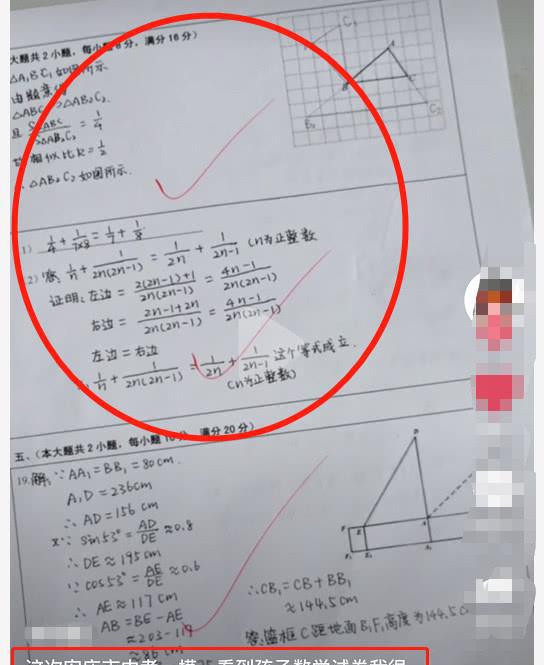 大题共2小题,每小题8分,满分16分)
△A₁B₁C₁如图所示
由题意得
△ABC∽△AB₂C₂
且 S△ABC/S△AB₂C₂ = 1/4
相似比k = 1/2
△AB₂C₂如图所示.
C₁
A
B
C
B₂
C₂
1) 1/4 + 1/(7×8) = 1/7 + 1/8
2) 1/n + 1/(2n(2n-1)) = 1/(2n) + 1/(2n-1) (n为正整数
证明:左边 = (2(2n-1)+1)/(2n(2n-1)) = (4n-1)/(2n(2n-1))
右边 = (2n-1+2n)/(2n(2n-1)) = (4n-1)/(2n(2n-1))
左边=右边
∴ 1/n + 1/(2n(2n-1)) = 1/(2n) + 1/(2n-1) 这个等式成立.
(n为正整数)
五、(本大题共2小题,每小题10分,满分20分)
19.解:∵AA₁=BB₁=80cm.
A₁D=236cm
∴AD=156cm
又∵sin53°=AD/DE≈0.8
∴DE≈195cm
∵cos53°=AE/DE≈0.6
∴AE≈117cm
AB=BE-AE
≈203-117
≈86cm
∴CB₁=CB+BB₁
≈144.5cm
答:篮框C距地面B₁F₁高度为144.5c